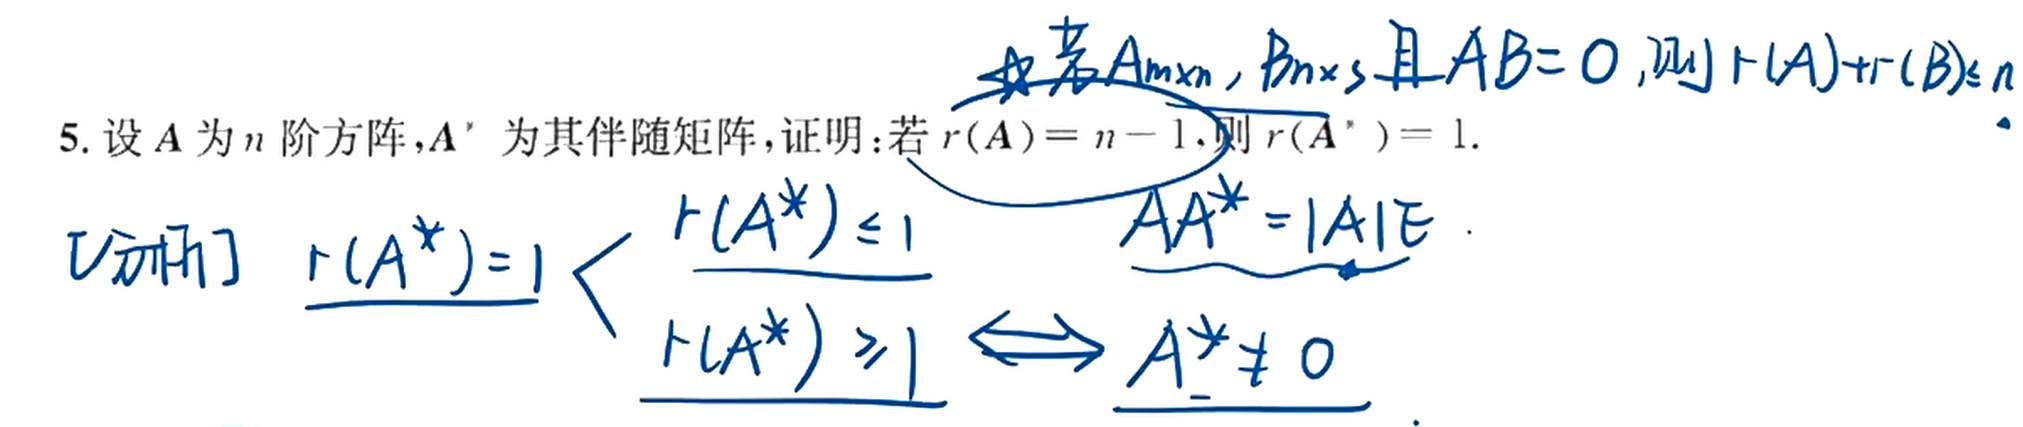 ☆若 Am×n, Bn×s 且 AB=0, 则 r(A)+r(B)≤n
5. 设 A 为 n 阶方阵,A* 为其伴随矩阵,证明:若 r(A)=n-1,则 r(A*)=1.
[分析] r(A*)=1 < r(A*)≤1 AA*=|A|E
r(A*)≥1 ⟺ A*≠0